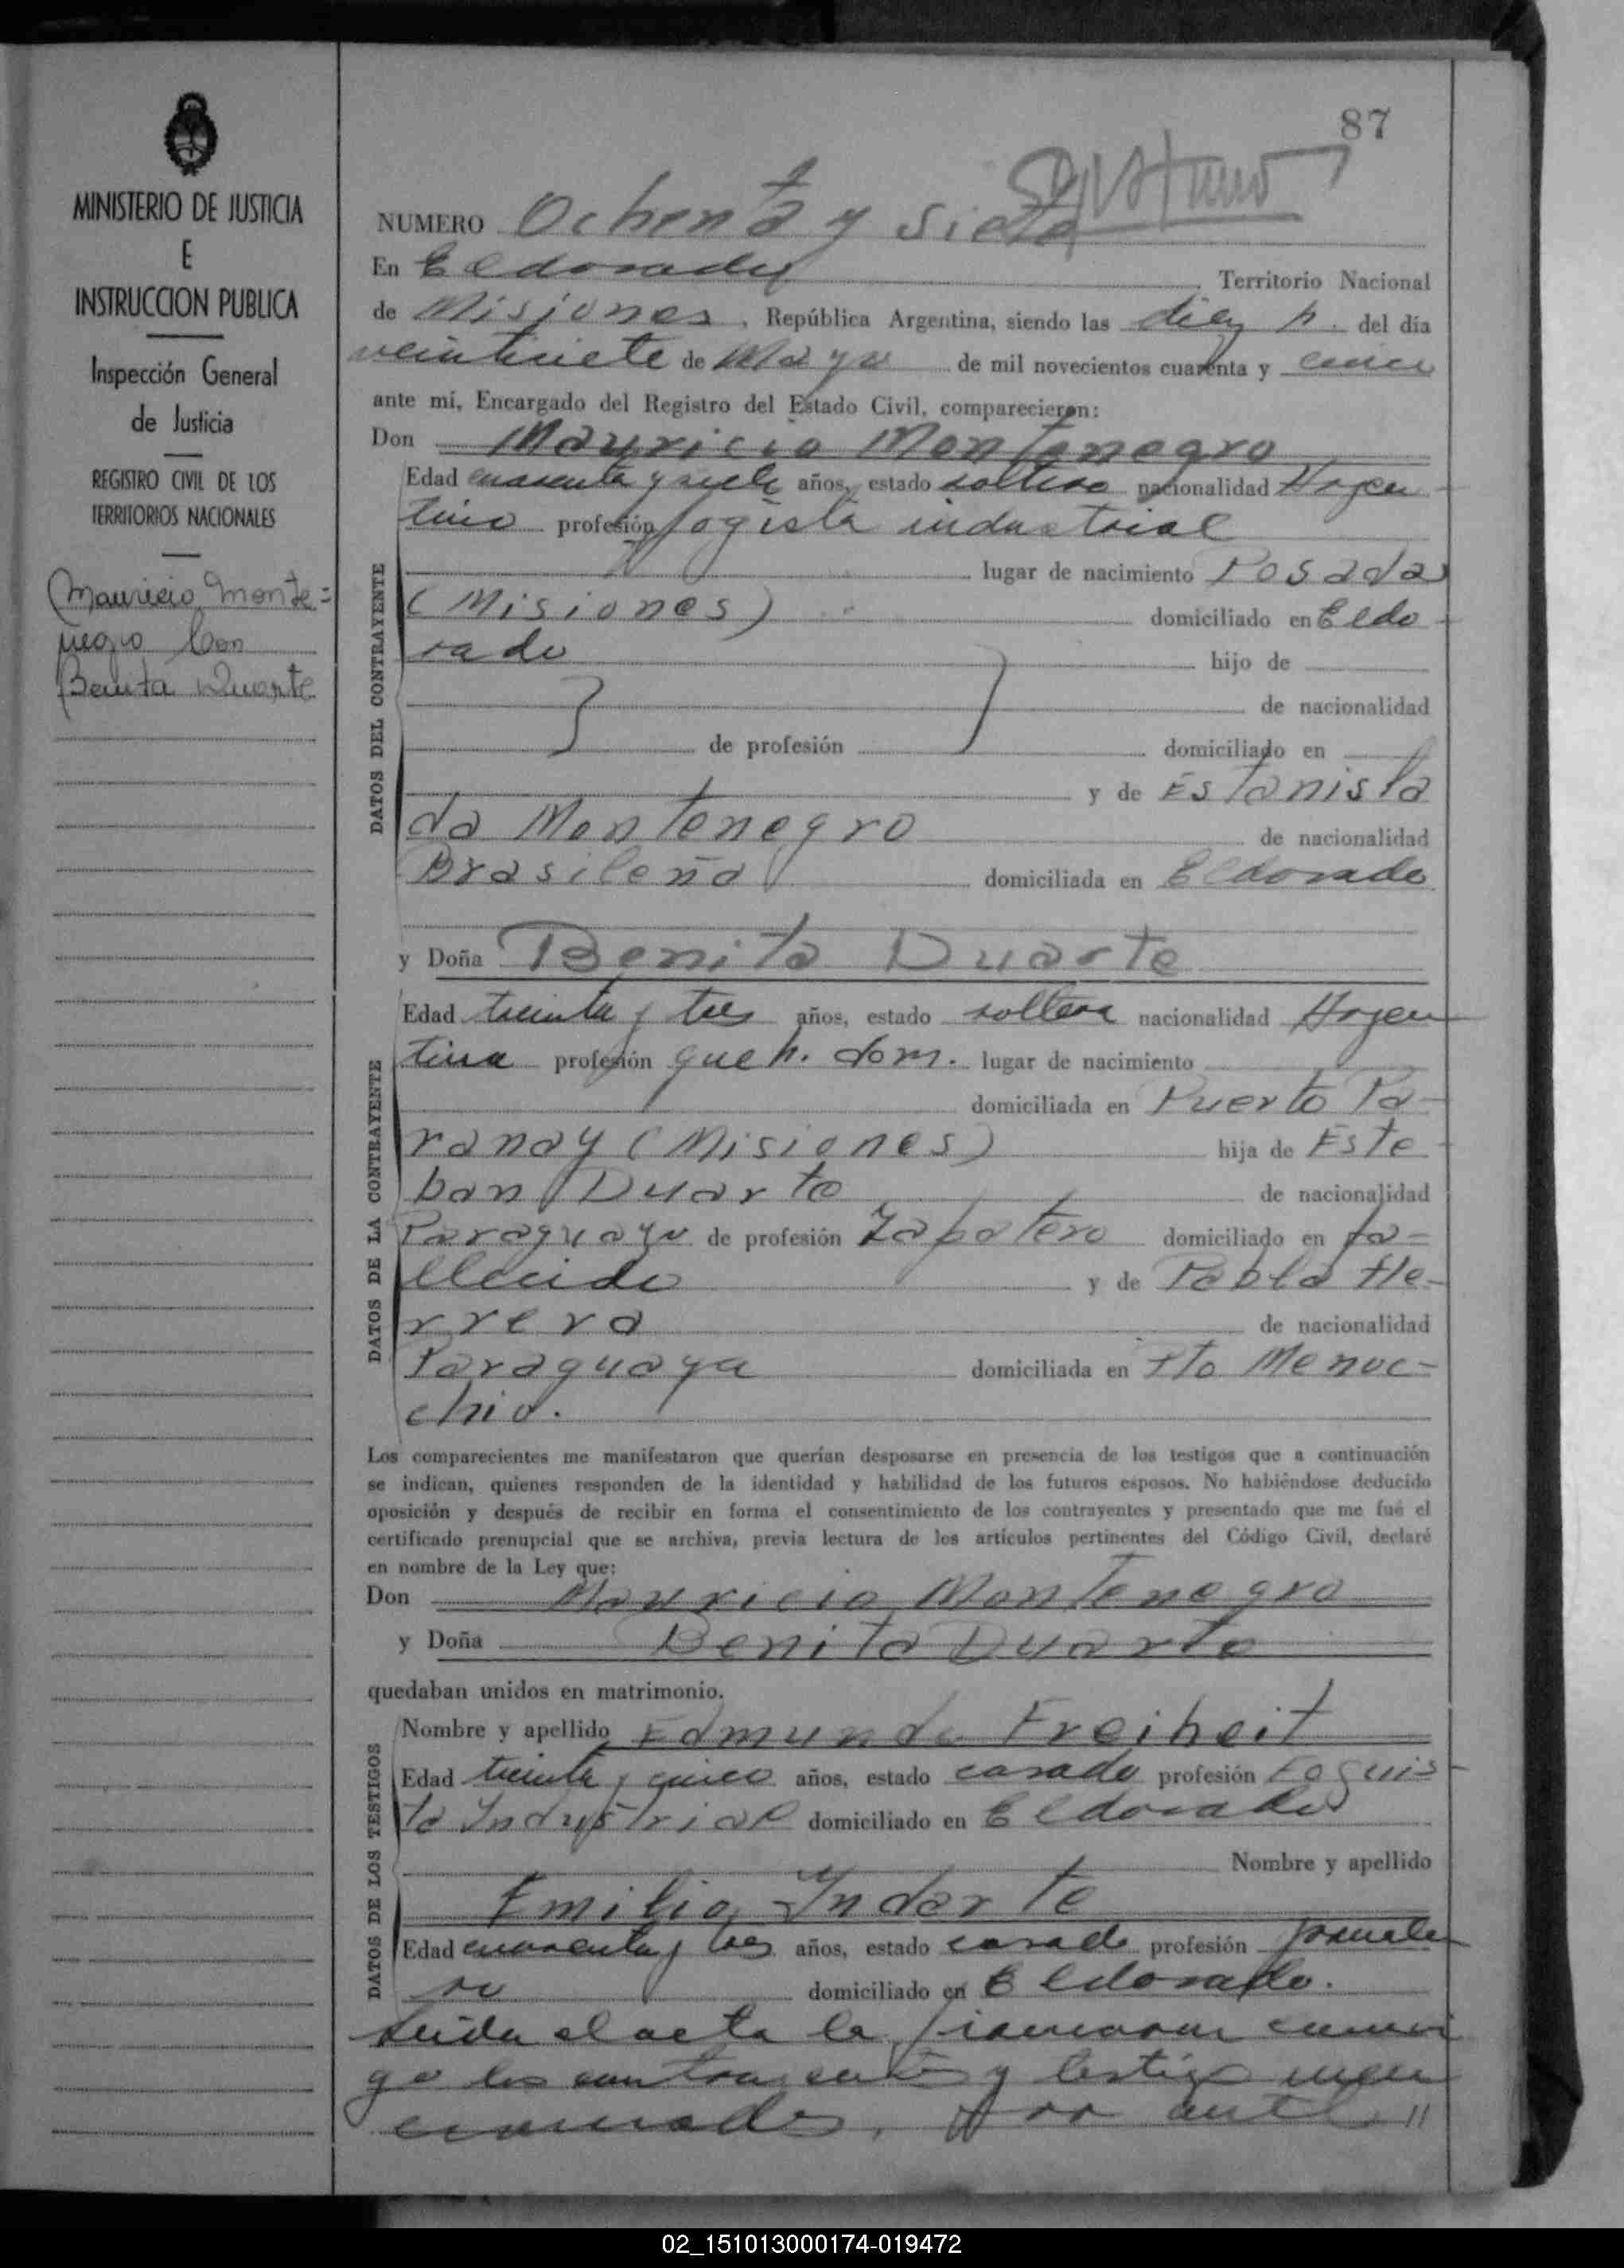 87
MINISTERIO DE JUSTICIA
E
INSTRUCCION PUBLICA
Inspección General
de Justicia
REGISTRO CIVIL DE LOS
TERRITORIOS NACIONALES
Mauricio Monte=
negro con
Benita Duarte
NUMERO Ochenta y siete
En Eldorado Territorio Nacional
de Misiones, República Argentina, siendo las diez h. del día
veintisiete de Mayo de mil novecientos cuarenta y cinco
ante mí, Encargado del Registro del Estado Civil, comparecieron:
Don Mauricio Montenegro
DATOS DEL CONTRAYENTE
Edad cuarenta y siete años, estado soltero nacionalidad Argen
tino profesión fogista industrial
lugar de nacimiento Posadas
(Misiones) domiciliado en Eldo
rado hijo de
de nacionalidad
de profesión domiciliado en
y de Estanisla
da Montenegro de nacionalidad
Brasileña domiciliada en Eldorado
y Doña Benita Duarte
DATOS DE LA CONTRAYENTE
Edad treinta y tres años, estado soltera nacionalidad Argen
tina profesión queh. dom. lugar de nacimiento
domiciliada en Puerto Pa-
ranay (Misiones) hija de Este
ban Duarte de nacionalidad
Paraguayo de profesión Zapatero domiciliado en fa=
llecido y de Pabla He-
rrera de nacionalidad
Paraguaya domiciliada en Pto Menoc-
chio.
Los comparecientes me manifestaron que querían desposarse en presencia de los testigos que a continuación
se indican, quienes responden de la identidad y habilidad de los futuros esposos. No habiéndose deducido
oposición y después de recibir en forma el consentimiento de los contrayentes y presentado que me fué el
certificado prenupcial que se archiva, previa lectura de los artículos pertinentes del Código Civil, declaré
en nombre de la Ley que:
Don Mauricio Montenegro
y Doña Benita Duarte
quedaban unidos en matrimonio.
DATOS DE LOS TESTIGOS
Nombre y apellido Edmundo Freiheit
Edad treinta y cinco años, estado casado profesión Foguis
ta Industrial domiciliado en Eldorado
Nombre y apellido
Emilio Indarte
Edad cuarenta y tres años, estado casado profesión jornale
ro domiciliado en Eldorado.
Leida el acta la firmaron conmi
go los contrayentes y testigo men
cionados.
02_151013000174-019472